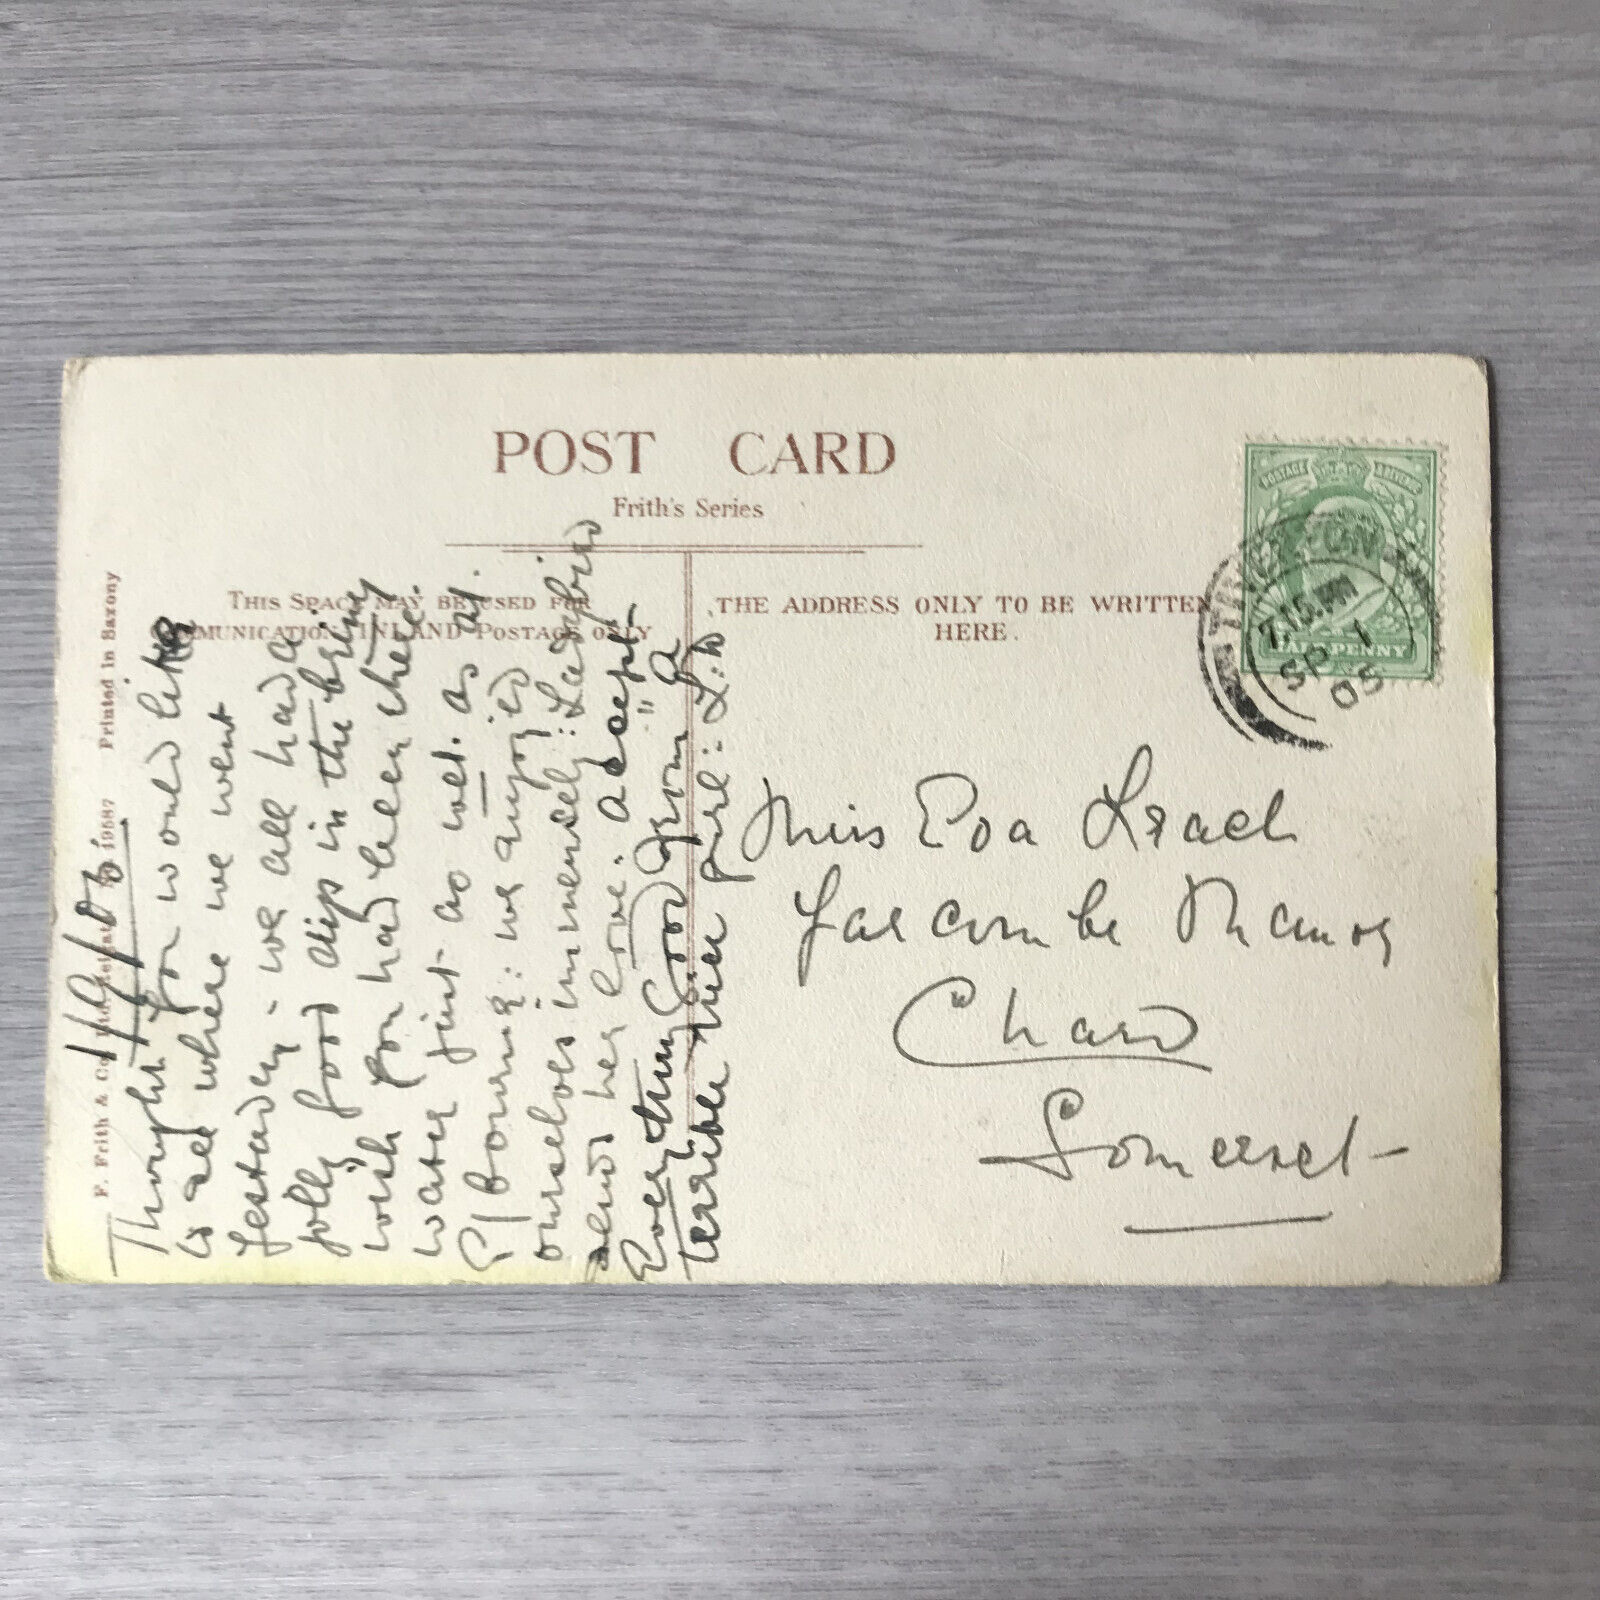 POST CARD
Frith's Series
THIS SPACE MAY BE USED FOR
COMMUNICATION INLAND POSTAGE ONLY
THE ADDRESS ONLY TO BE WRITTEN
HERE.
F. Frith & Co. Ltd. Reigate 19687 Printed in Saxony
1/9/05
Thought you would like
to see where we went
yesterday - we all had a
jolly good dip in the briny
wish you had been there.
water just as wet as at
P/bourne: we enjoyed
ourselves immensely:
sends her love. accept
Everything Good from a
terrible nice girl: L.D
Miss Eva
Manor
Chard
Somerset
POSTAGE REVENUE
HALFPENNY
TIVERTON
7.15 PM
SP 1
05